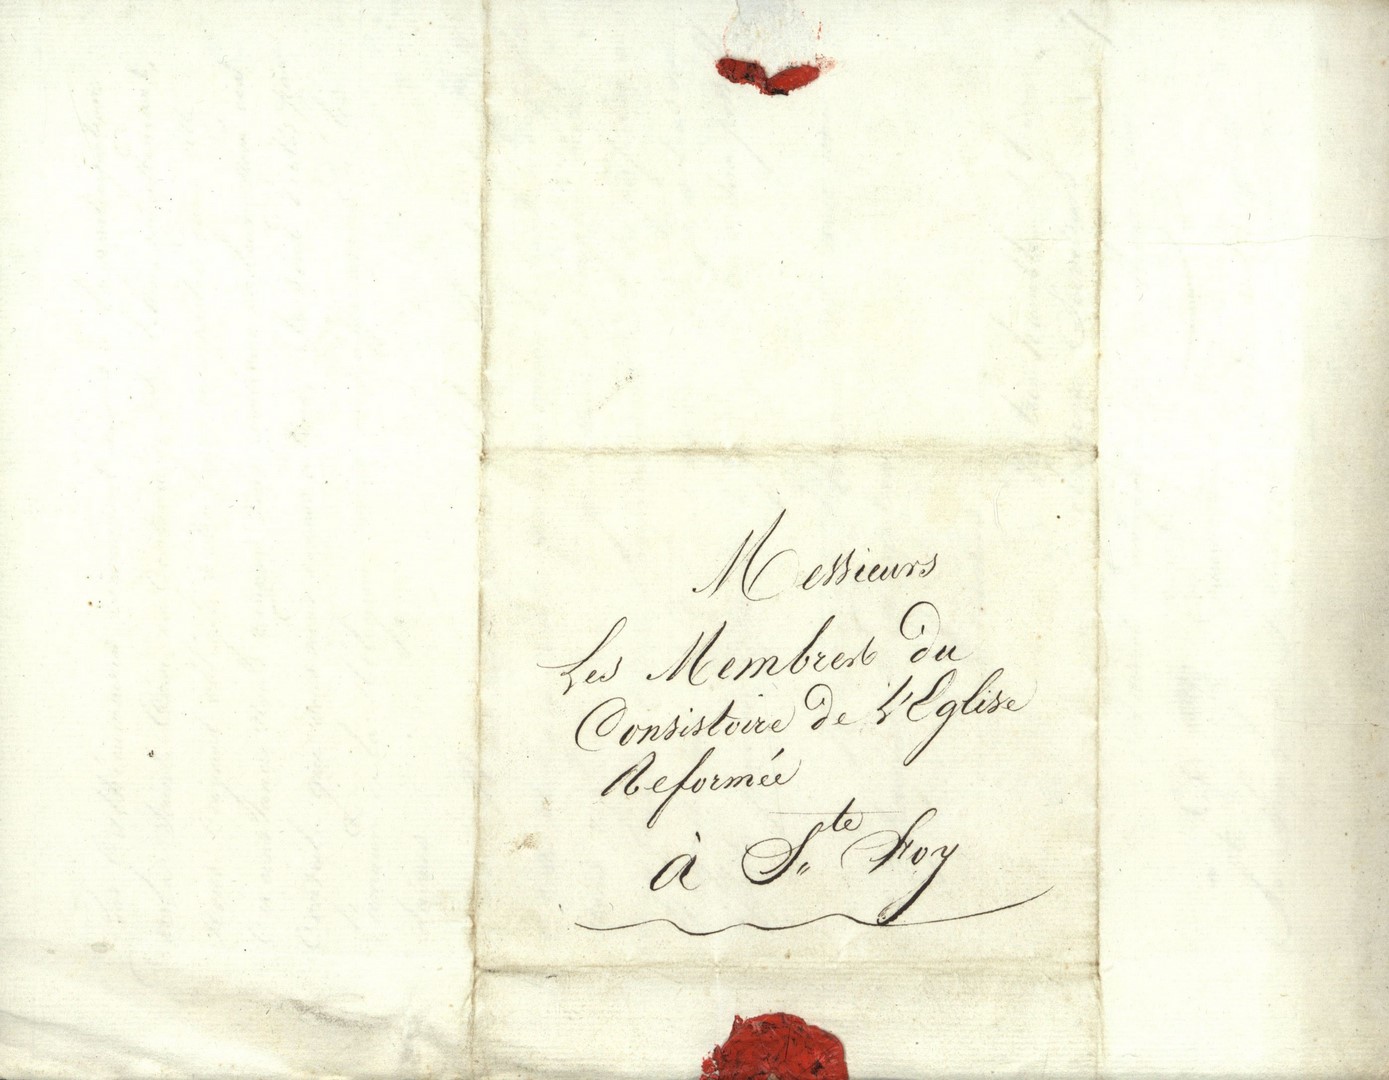 Messieurs
Les Membres du
Consistoire de L'Eglise
Reformée
à Ste Foy